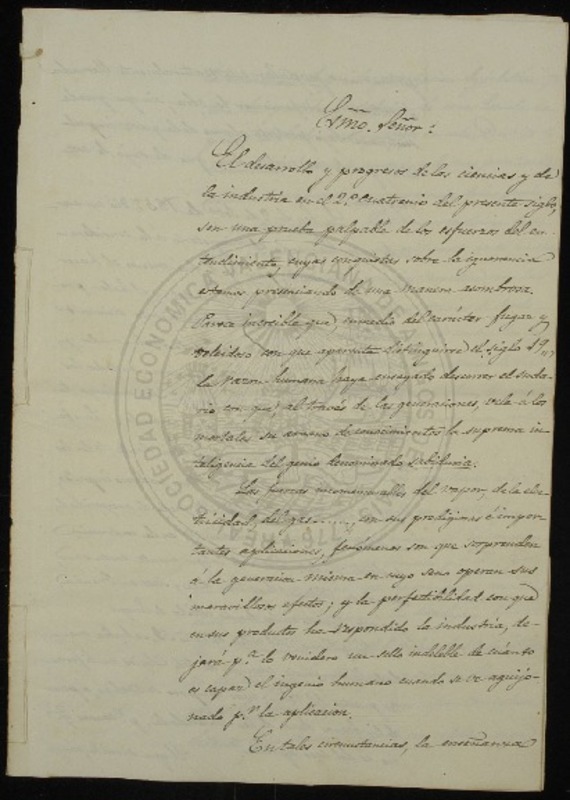 Exmo. Señor:
El desarrollo y progresos de las ciencias y de
la industria en el 2º cuatrenio del presente siglo,
son una prueba palpable de los esfuerzos del en-
tendimiento, cuyas conquistas sobre la ignorancia
estamos presenciando de una manera asombrosa.
Parece increible que enmedio del carácter fugaz y
veleidoso con que aparenta distinguirse el siglo 19,
la razon humana haya ensayado descorrer el suda-
rio en que al través de las generaciones, vela á los
mortales su arcano de conocimientos la suprema in-
teligencia del genio denominado sabiduria.
Las fuerzas inconmensurables del vapor, de la elec-
tricidad, del gas......., con sus prodigiosas é impor-
tantes aplicaciones, fenómenos son que sorprenden
á la generacion misma en cuyo seno operan sus
maravillosos efectos; y la perfectibilidad con que
en sus productos ha respondido la industria, de-
jará p.ª lo venidero un sello indeleble de cuánto
es capaz el ingenio humano cuando se ve aguijo-
neado p.r la aplicacion.
En tales circunstancias, la enseñanza
SOCIEDAD ECONOMICA VALENCIANA DE AMIGOS DEL
REAL
1776